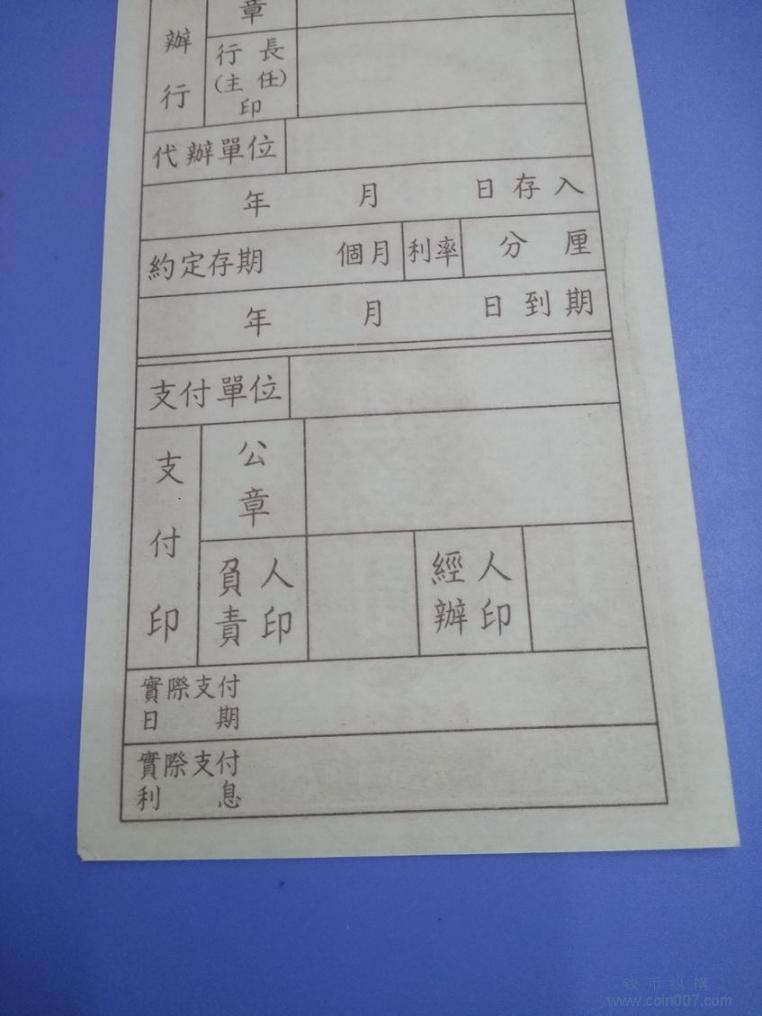 章
辦行
行長
(主任)
印
代辦單位
年 月 日存入
約定存期 個月 利率 分 厘
年 月 日到期
支付單位
支付印
公章
負責人印 經辦人印
實際支付
日期
實際支付
利息
钱币纵横
www.coin007.com